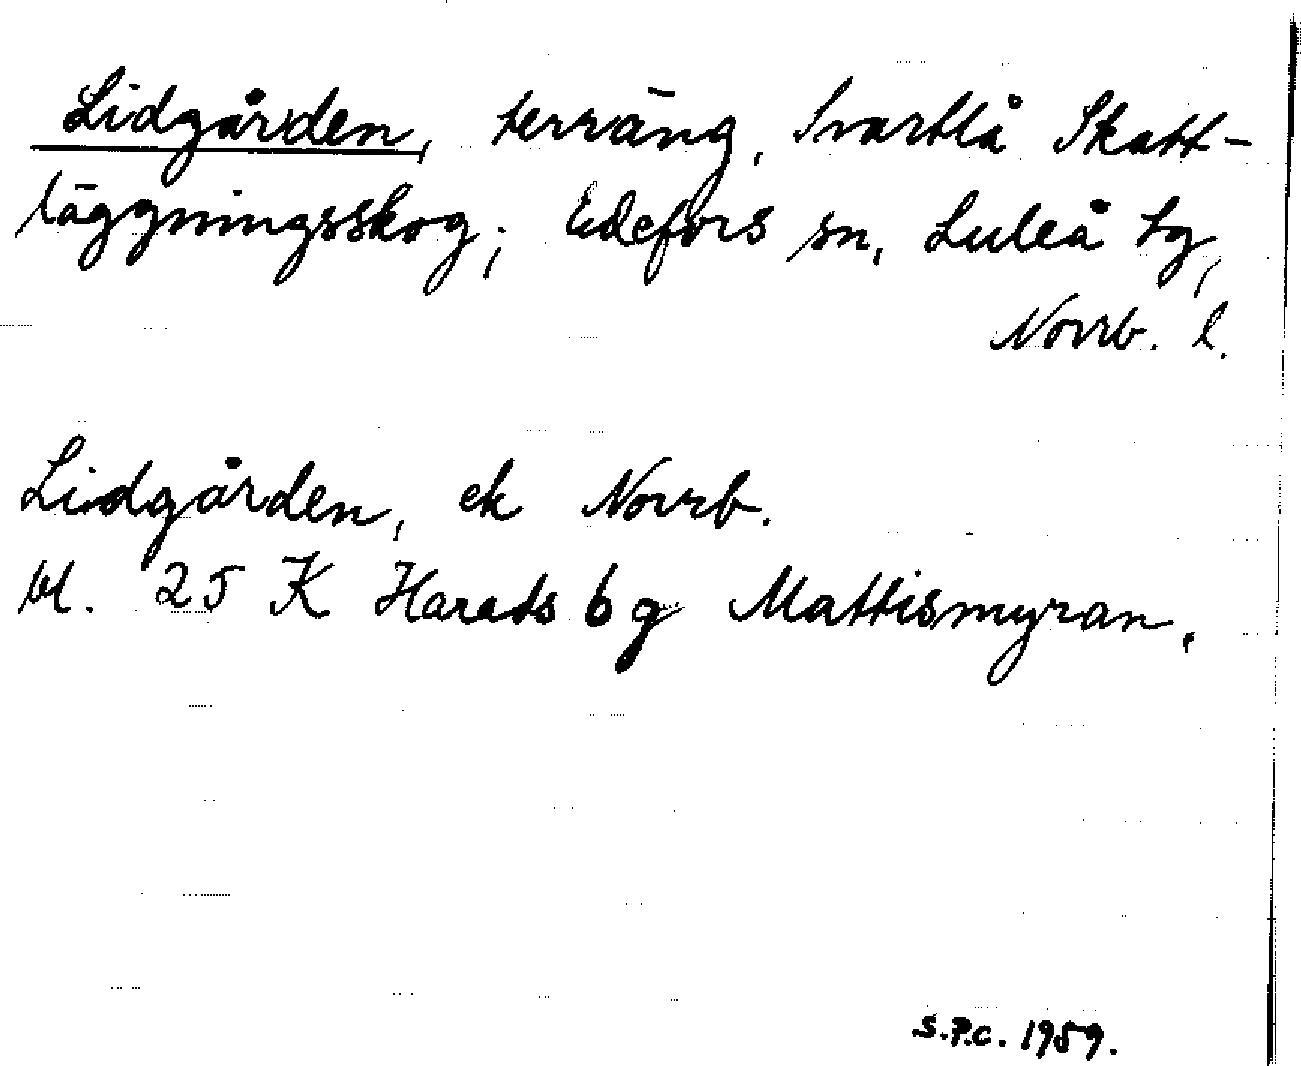 Lidgården, terräng, Svartlå Skatt-
läggningsskog; Edefors sn, Luleå tg,
Norrb. l.
Lidgården, ek Norrb.
bl. 25 K Harads 6 g Mattismyran,
S.P.C. 1959.